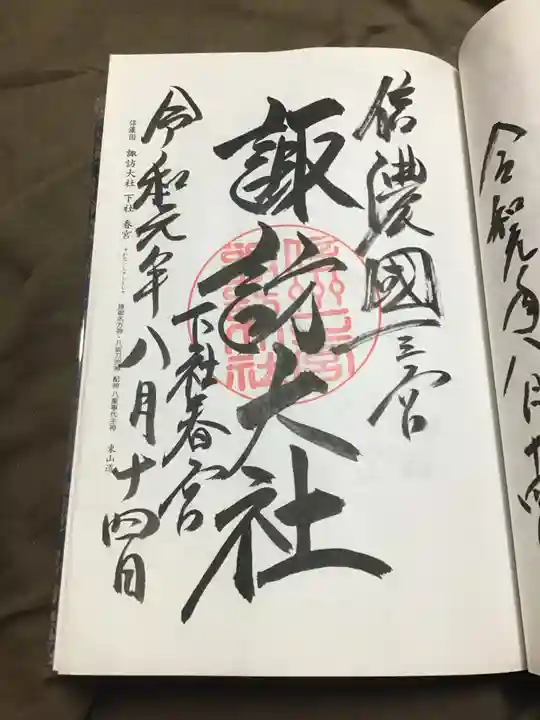 信濃國一之宮
諏訪大社
下社春宮
令和元年八月十四日
信濃国 諏訪大社 下社 春宮
東山道